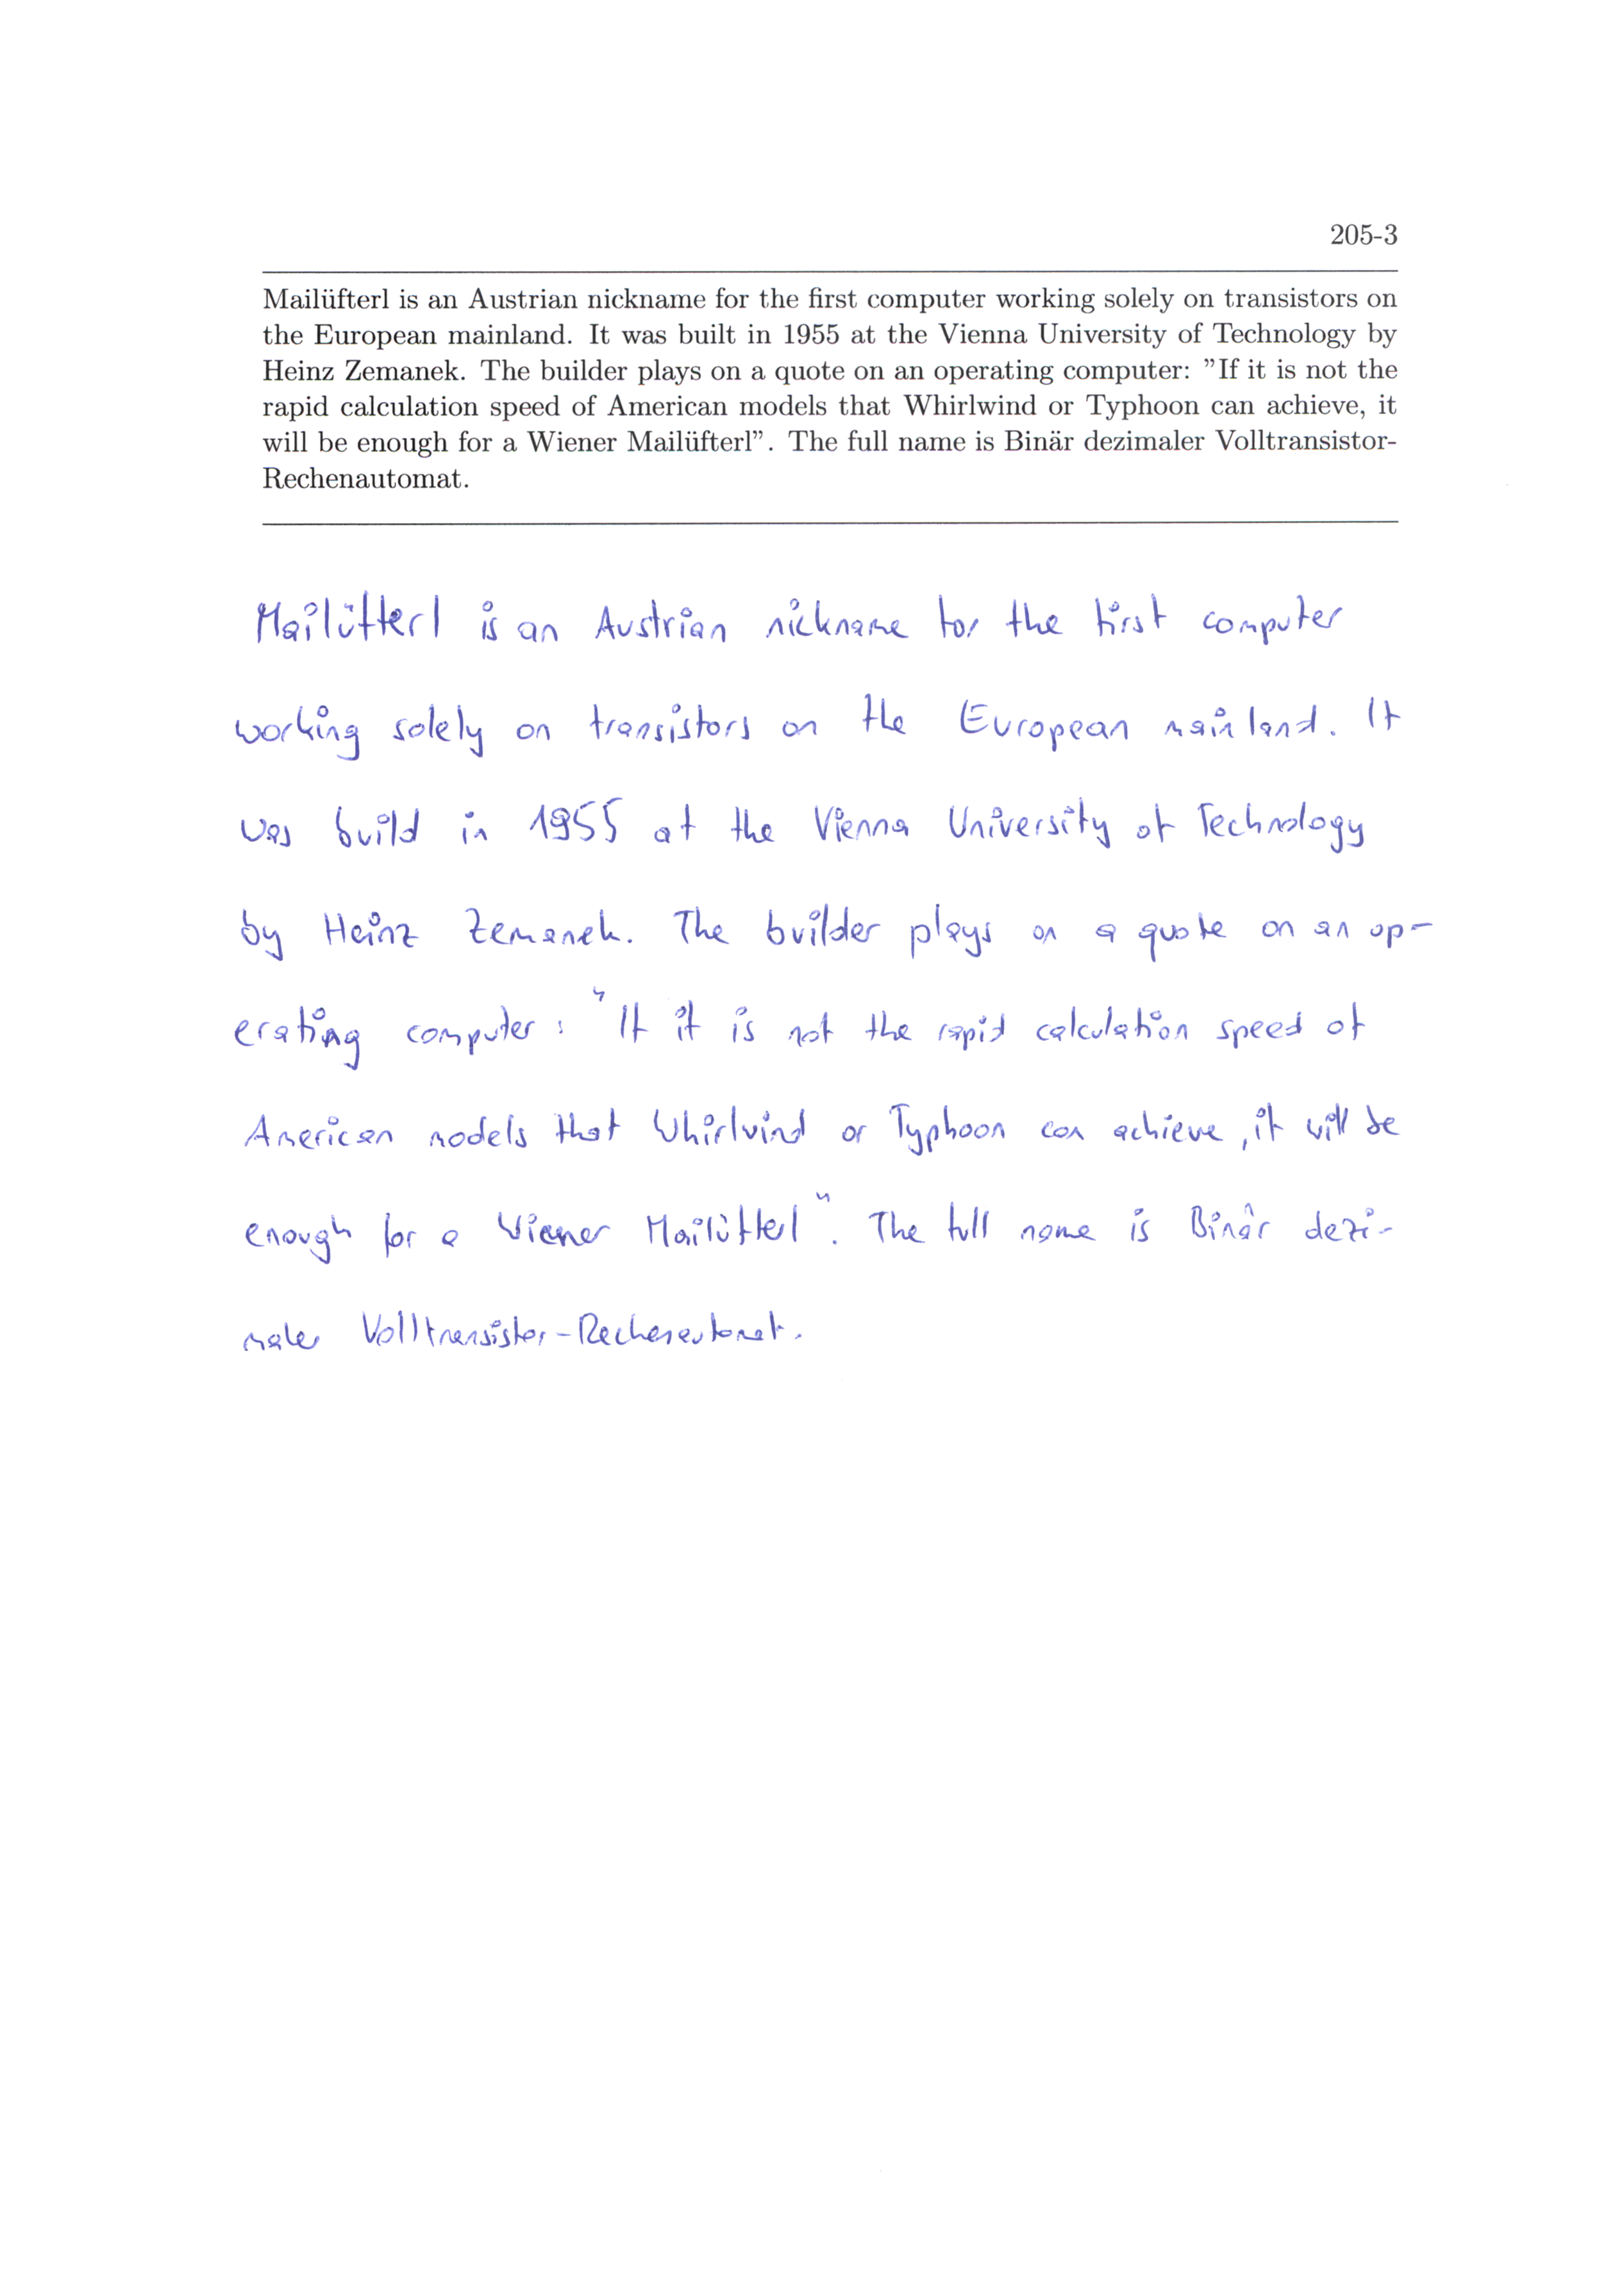 205-3
Mailüfterl is an Austrian nickname for the first computer working solely on transistors on
the European mainland. It was built in 1955 at the Vienna University of Technology by
Heinz Zemanek. The builder plays on a quote on an operating computer: ”If it is not the
rapid calculation speed of American models that Whirlwind or Typhoon can achieve, it
will be enough for a Wiener Mailüfterl”. The full name is Binär dezimaler Volltransistor-
Rechenautomat.
Mailüfterl is an Austrian nickname for the first computer
working solely on transistors on the European mainland. It
was build in 1955 at the Vienna University of Technology
by Heinz Zemanek. The builder plays on a quote on an op-
erating computer: "If it is not the rapid calculation speed of
American models that Whirlwind or Typhoon can achieve, it will be
enough for a Wiener Mailüfterl". The full name is Binär dezi-
maler Volltransistor-Rechenautomat.